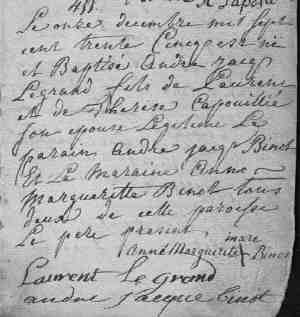 Le onze decembre mil sept
cent trente Cincq est né
et Baptisé andre jacq
Legrand fils de Laurent
et de Therese Capouillié
son epouse Legitime Le
parain andre jacq Binot
Et La maraine anne
marguerytte Binot tous
deux de cette paroisse
Le pere present, marc
anne Marguerite Binot
Laurent le grand
andre Jacque binot